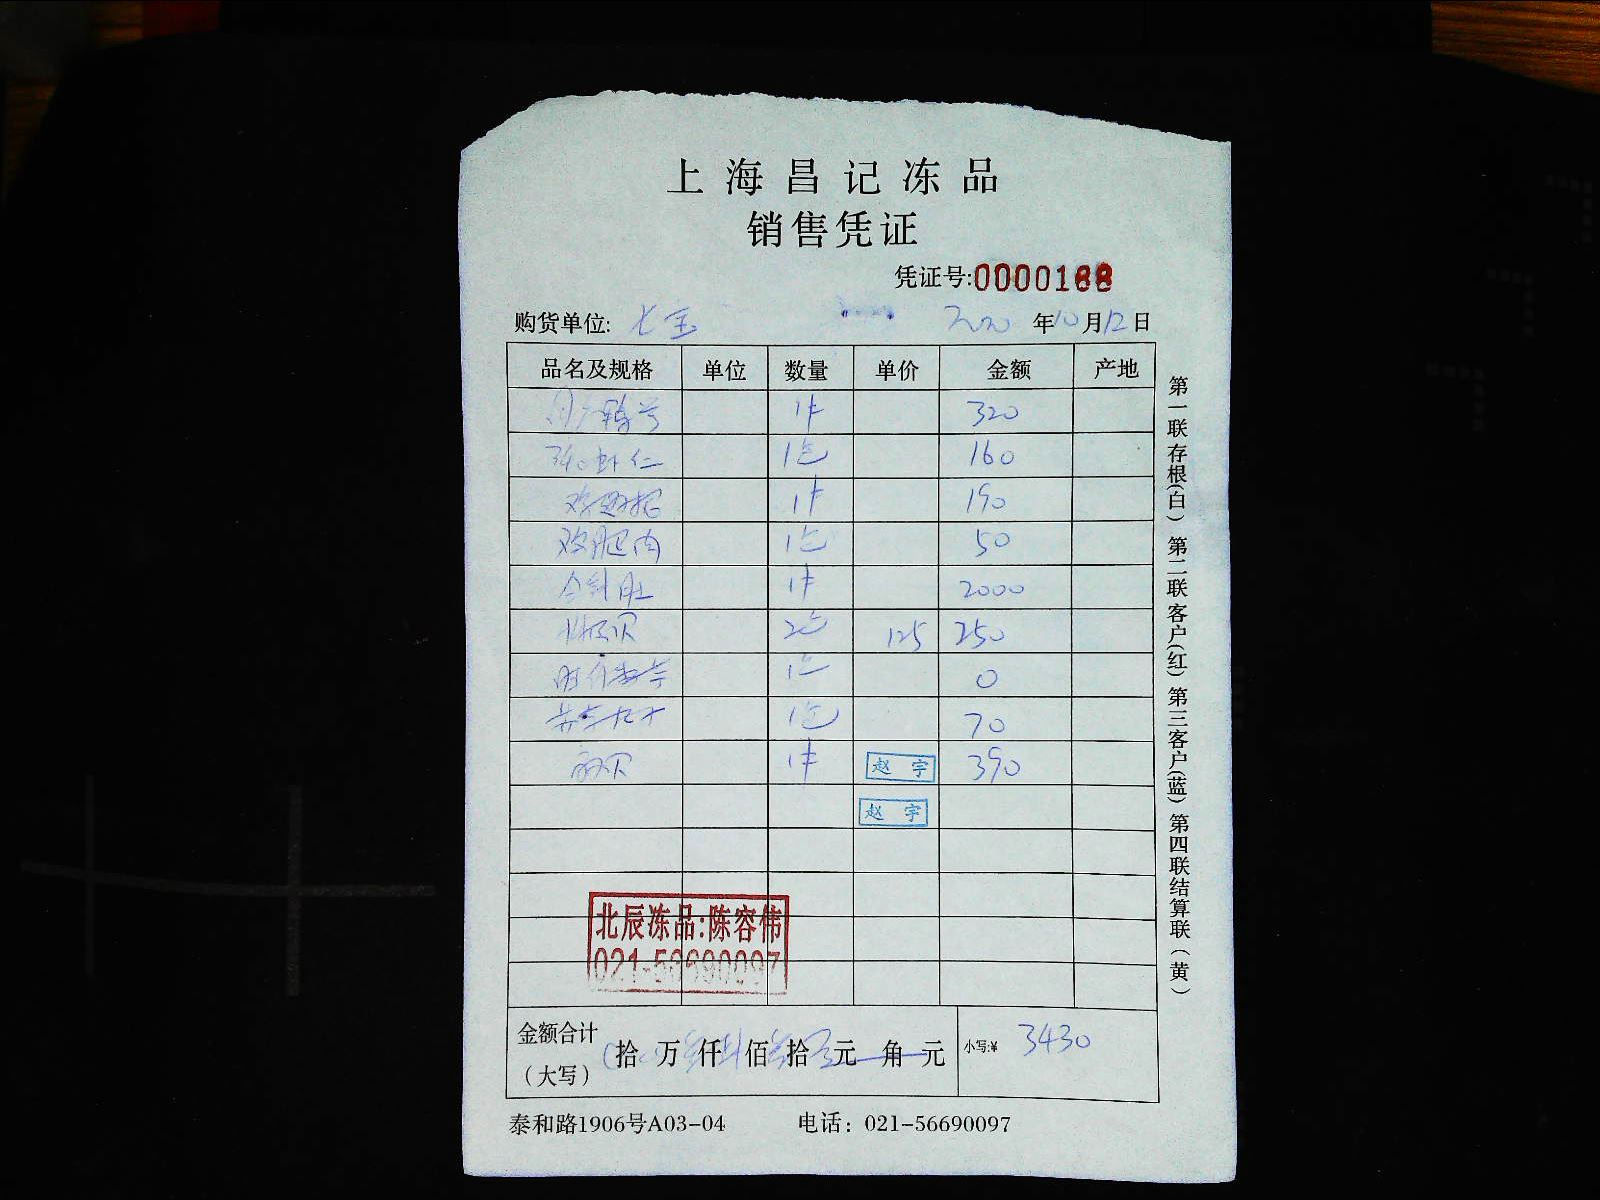 上海昌记冻品
销售凭证
凭证号:0000188
购货单位: 七宝 2020 年10月12日
品名及规格 单位 数量 单价 金额 产地
1件 320
虾仁 1包 160
鸡翅根 1件 190
鸡腿肉 1包 50
1件 2000
2包 125 250
1包 0
1包 70
1件 赵宇 390
赵宇
北辰冻品:陈容伟
021-56690097
金额合计
(大写)
拾 万 仟 佰 拾 元 角 元
小写:¥ 3430
泰和路1906号A03-04 电话: 021-56690097
第一联存根(白) 第二联客户(红) 第三客户(蓝) 第四联结算联(黄)